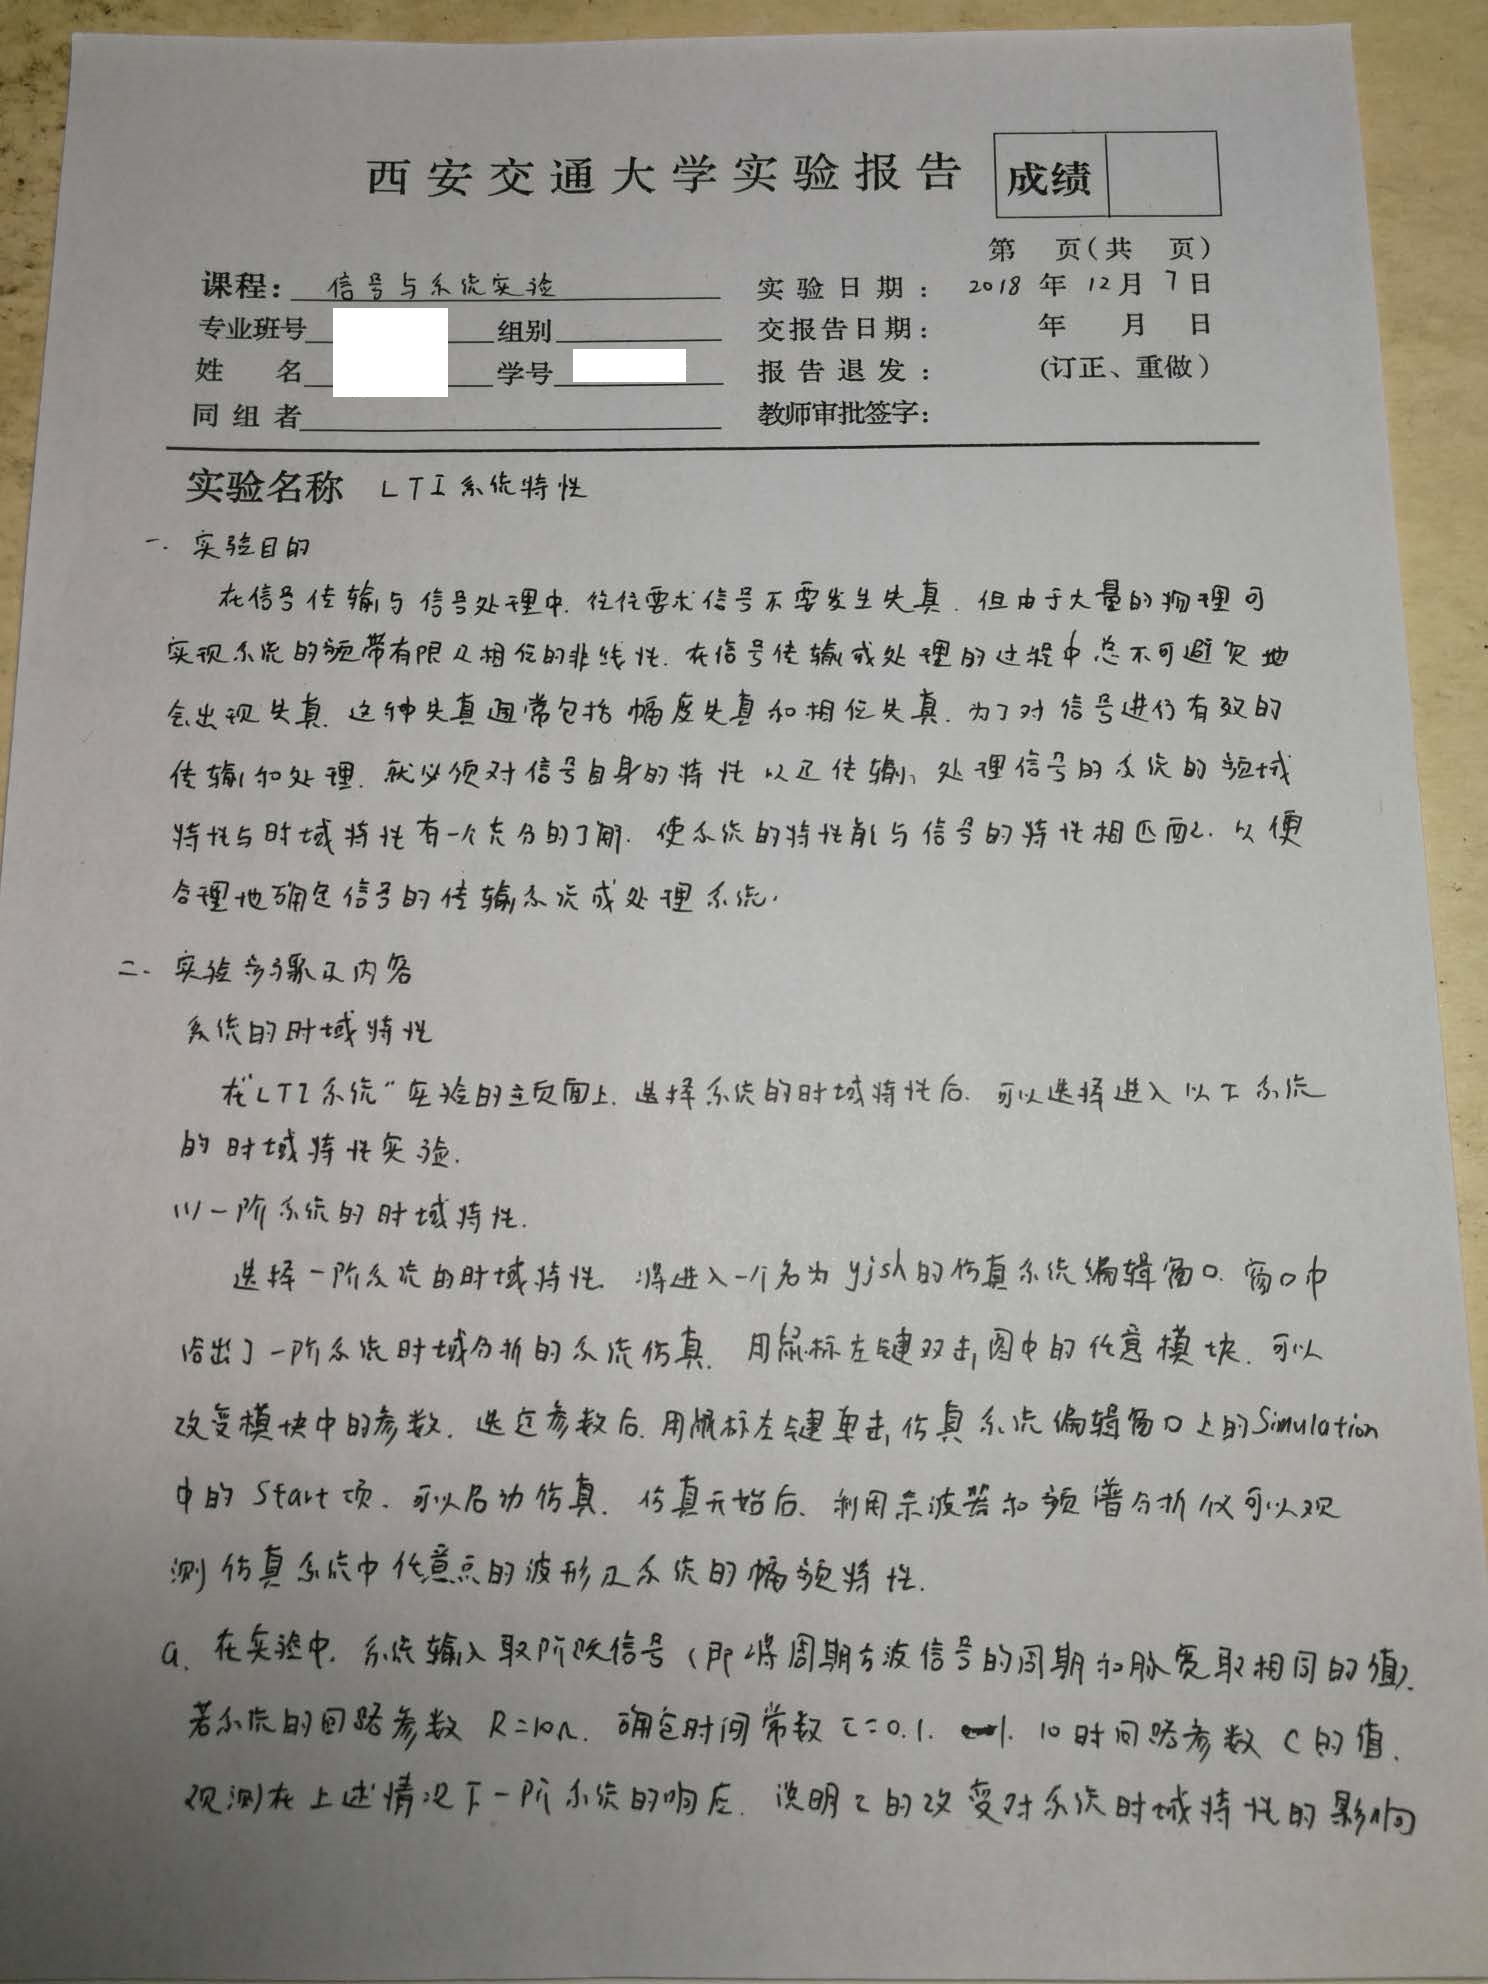 西安交通大学实验报告 成绩
第 页(共 页)
课程: 信号与系统实验 实验日期: 2018 年 12 月 7 日
专业班号 组别 交报告日期: 年 月 日
姓 名 学号 报告退发: (订正、重做)
同组者 教师审批签字:
实验名称 LTI系统特性
一. 实验目的
在信号传输与信号处理中. 往往要求信号不要发生失真. 但由于大量的物理可
实现系统的频带有限及相位的非线性. 在信号传输或处理的过程中总不可避免地
会出现失真. 这种失真通常包括幅度失真和相位失真. 为了对信号进行有效的
传输和处理. 就必须对信号自身的特性以及传输、处理信号的系统的频域
特性与时域特性有一个充分的了解. 使系统的特性能与信号的特性相匹配. 以便
合理地确定信号的传输系统或处理系统.
二. 实验步骤及内容
系统的时域特性
在"LTI系统"实验的主页面上. 选择系统的时域特性后. 可以选择进入以下系统
的时域特性实验.
(1) 一阶系统的时域特性.
选择一阶系统的时域特性. 将进入一个名为yjsh的仿真系统编辑窗口. 窗口中
给出了一阶系统时域分析的系统仿真. 用鼠标左键双击图中的任意模块. 可以
改变模块中的参数. 选定参数后. 用鼠标左键单击仿真系统编辑窗口上的Simulation
中的 Start 项. 可以启动仿真. 仿真开始后. 利用示波器和频谱分析仪可以观
测仿真系统中任意点的波形及系统的幅频特性.
a. 在实验中. 系统输入取阶跃信号(即将周期方波信号的周期和脉宽取相同的值).
若系统的回路参数 R=10Ω. 确定时间常数 τ=0.1. 1. 10 时回路参数 C 的值.
观测在上述情况下一阶系统的响应. 说明τ的改变对系统时域特性的影响